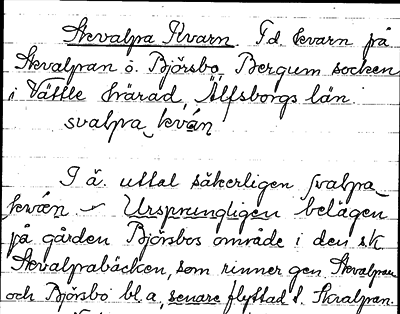 Skvalpa Kvarn. F.d. kvarn på
Skvalpan ö. Björsbo, Bergum socken
i Vättle härad, Älfsborgs län.
svalpa kván
I ä. uttal säkerligen svalpa
kván – Ursprungligen belägen
på gården Björsbos område i den s.k.
Skvalpabäcken, som rinner gen. Skvalpan
och Björsbo bl.a, senare flyttad t. Skvalpan.